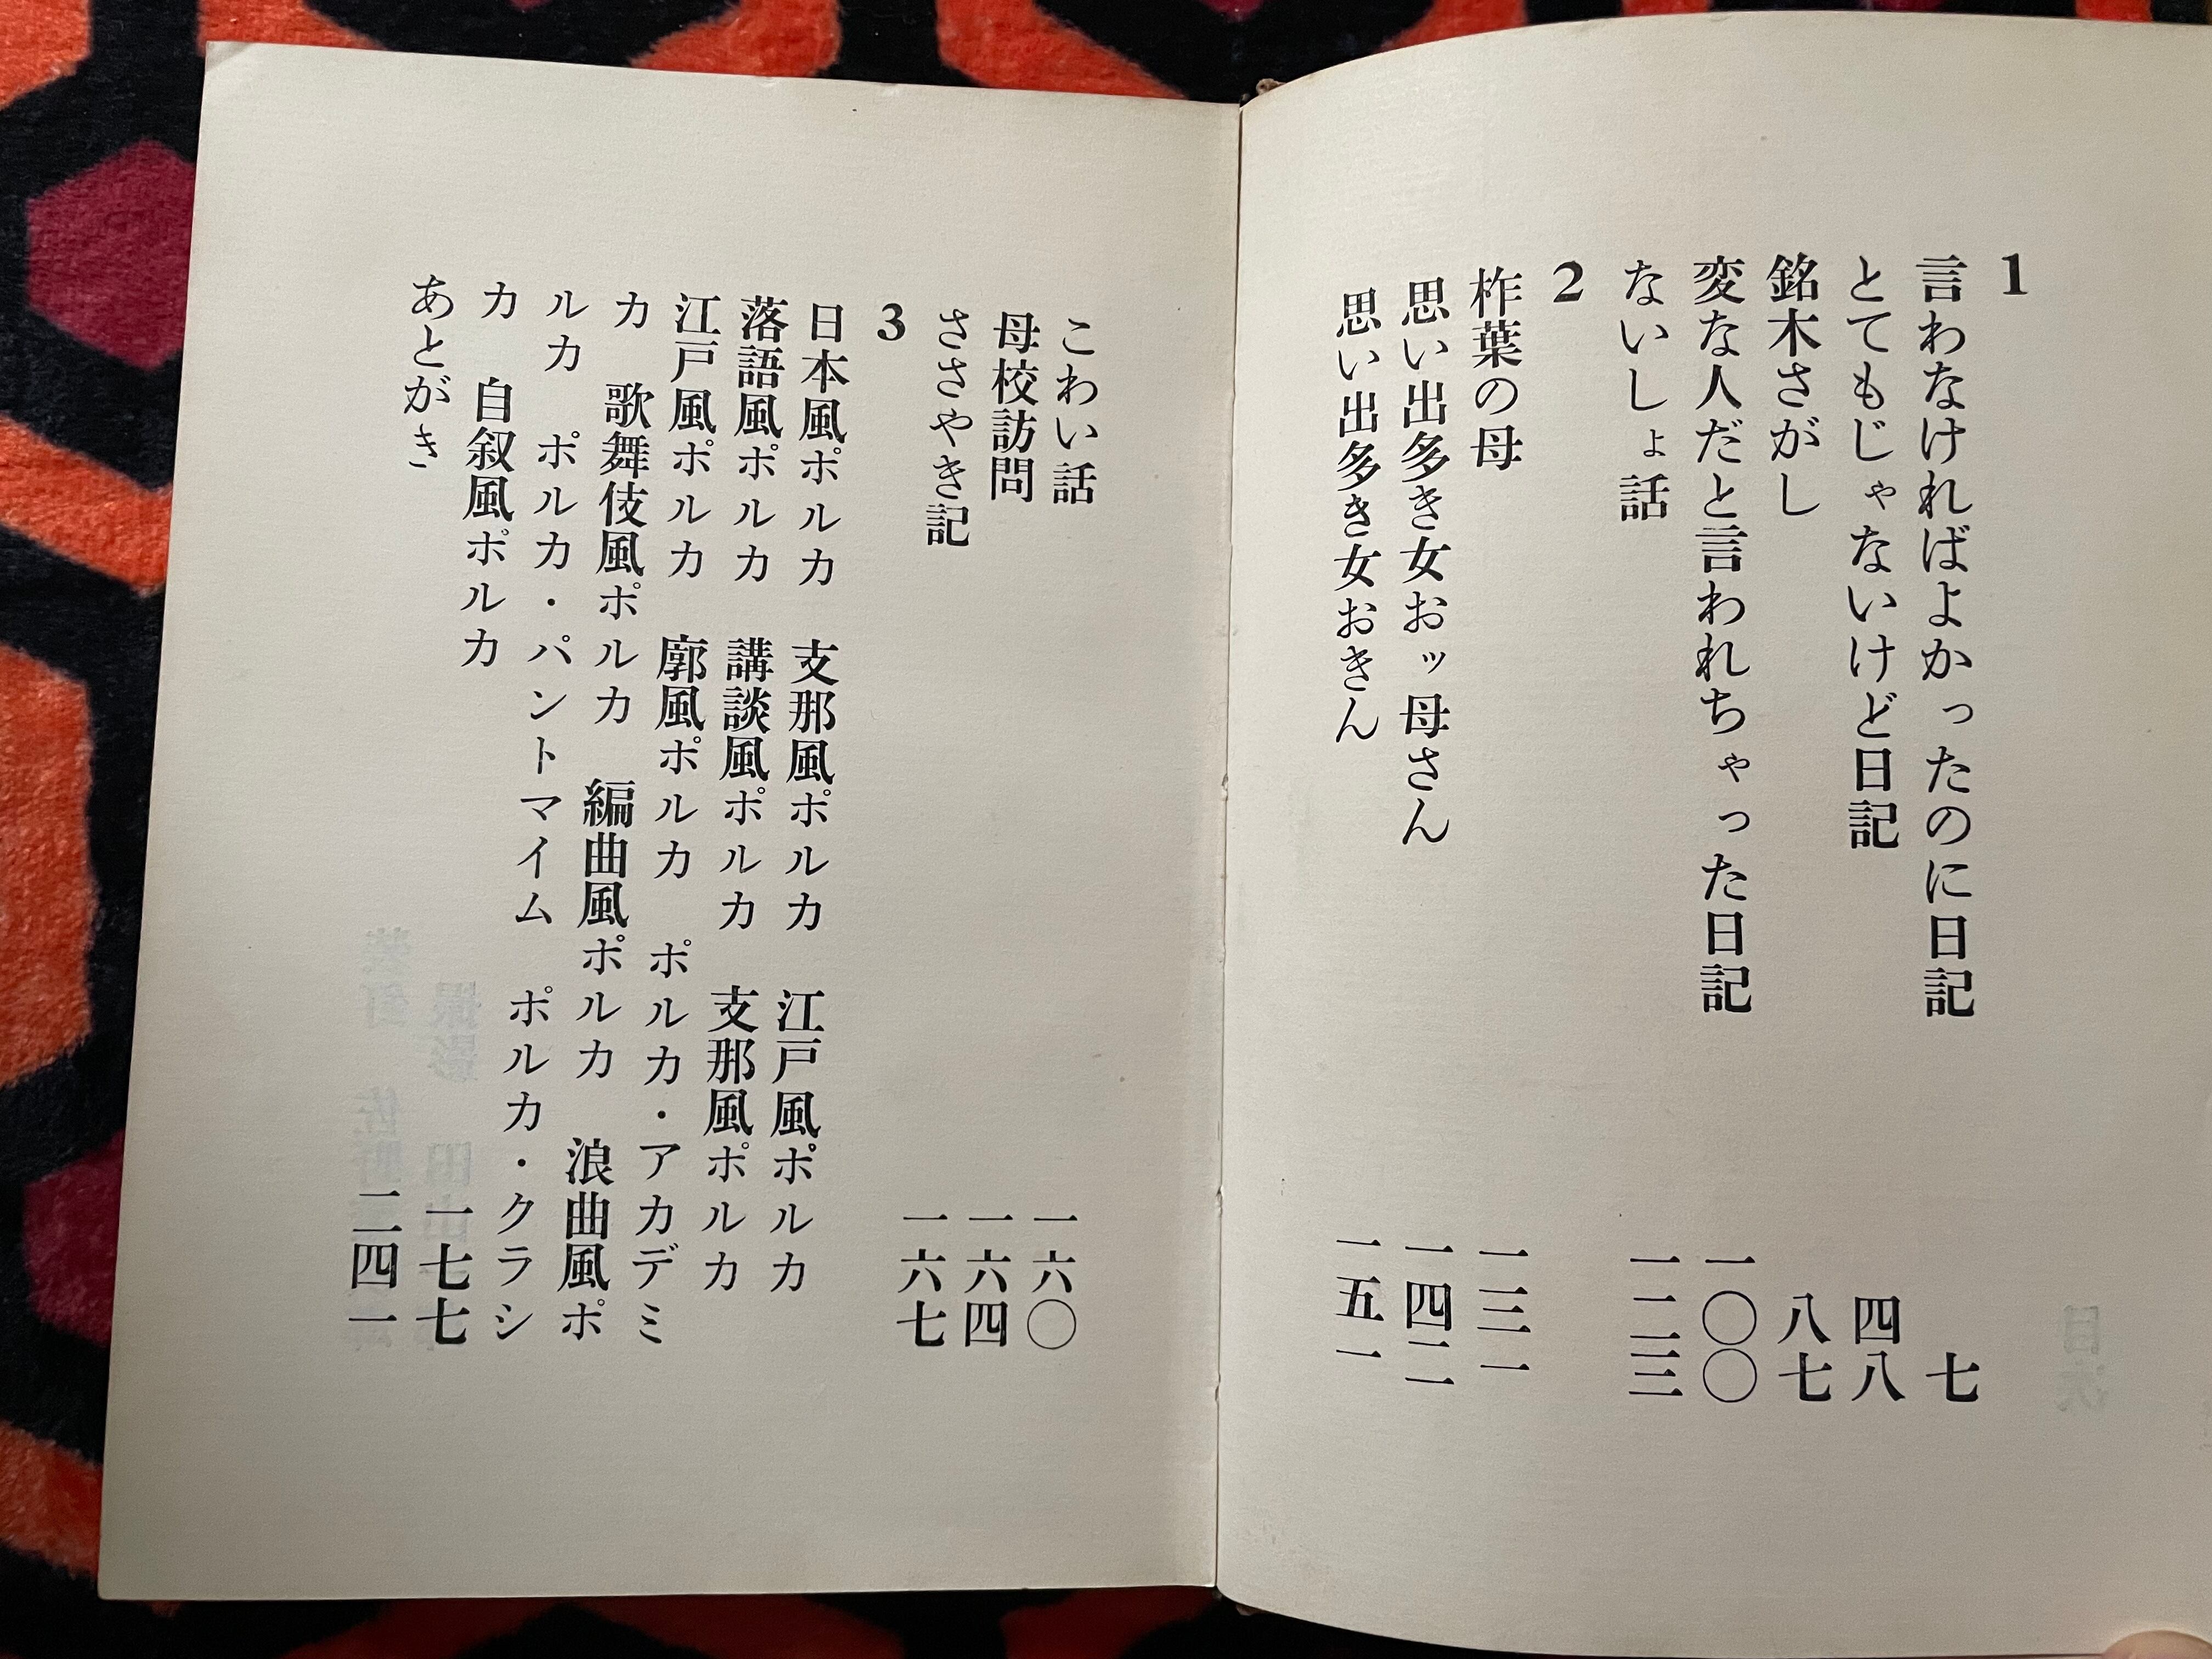 1
言わなければよかったのに日記 七
とてもじゃないけど日記 四八
銘木さがし 八七
変な人だと言われちゃった日記 一〇〇
ないしょ話 一二三
2
柞葉の母 一三一
思い出多き女おッ母さん 一四二
思い出多き女おきん 一五一
こわい話 一六〇
母校訪問 一六四
ささやき記 一六七
3
日本風ポルカ 支那風ポルカ 江戸風ポルカ
落語風ポルカ 講談風ポルカ 支那風ポルカ
江戸風ポルカ 廓風ポルカ ポルカ・アカデミ
カ 歌舞伎風ポルカ 編曲風ポルカ 浪曲風ポ
ルカ ポルカ・パントマイム ポルカ・クラシ
カ 自叙風ポルカ 一七七
あとがき 二四一
目次